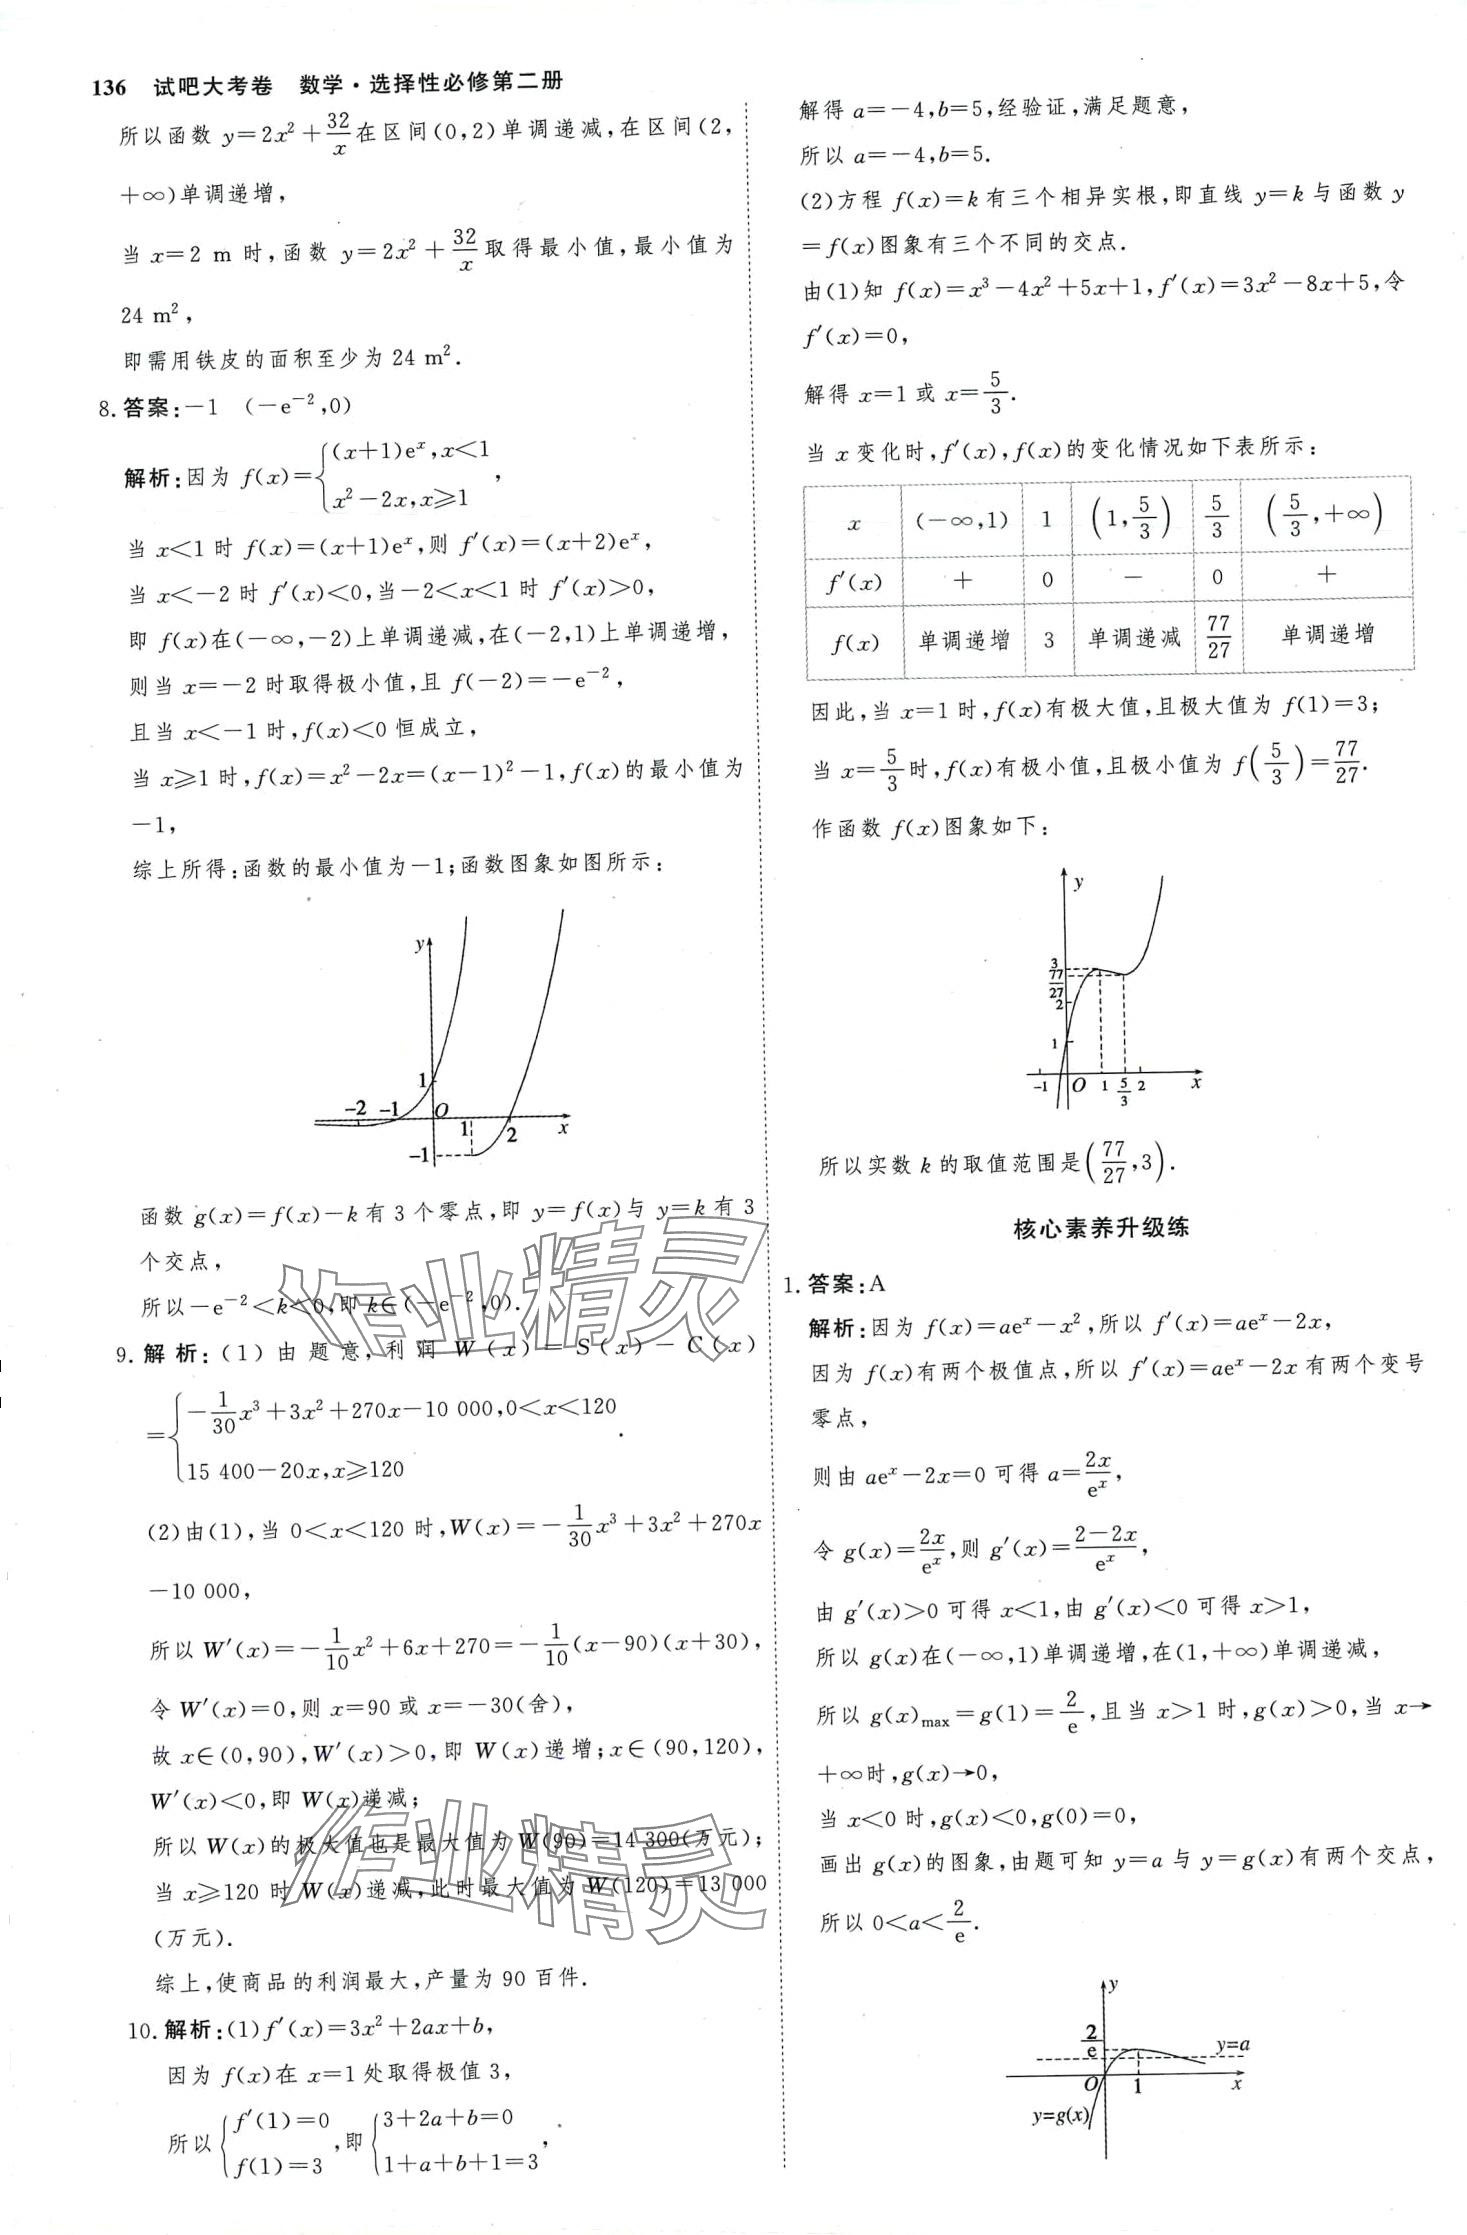 136 试吧大考卷 数学·选择性必修第二册
所以函数 y=2x²+32/x在区间(0,2)单调递减,在区间(2,
+∞)单调递增,
当 x=2 m 时,函数 y=2x²+32/x取得最小值,最小值为
24 m²,
即需用铁皮的面积至少为 24 m².
8.答案:-1 (-e⁻²,0)
解析:因为 f(x)={(x+1)eˣ,x<1
x²-2x,x≥1,
当 x<1 时 f(x)=(x+1)eˣ,则 f′(x)=(x+2)eˣ,
当 x<-2 时 f′(x)<0,当-2<x<1 时 f′(x)>0,
即 f(x)在(-∞,-2)上单调递减,在(-2,1)上单调递增,
则当 x=-2 时取得极小值,且 f(-2)=-e⁻²,
且当 x<-1 时,f(x)<0 恒成立,
当 x≥1 时,f(x)=x²-2x=(x-1)²-1,f(x)的最小值为
-1,
综上所得:函数的最小值为-1;函数图象如图所示:
y
1
-2 -1 O 1 2 x
-1
函数 g(x)=f(x)-k 有 3 个零点,即 y=f(x)与 y=k 有 3
个交点,
所以-e⁻²<k<0,即 k∈(-e⁻²,0).
9.解析:(1)由题意,利润 W(x)=S(x)-C(x)
={-1/30x³+3x²+270x-10 000,0<x<120
15 400-20x,x≥120.
(2)由(1),当 0<x<120 时,W(x)=-1/30x³+3x²+270x
-10 000,
所以 W′(x)=-1/10x²+6x+270=-1/10(x-90)(x+30),
令 W′(x)=0,则 x=90 或 x=-30(舍),
故 x∈(0,90),W′(x)>0,即 W(x)递增;x∈(90,120),
W′(x)<0,即 W(x)递减;
所以 W(x)的极大值也是最大值为 W(90)=14 300(万元);
当 x≥120 时 W(x)递减,此时最大值为 W(120)=13 000
(万元).
综上,使商品的利润最大,产量为 90 百件.
10.解析:(1)f′(x)=3x²+2ax+b,
因为 f(x)在 x=1 处取得极值 3,
所以{f′(1)=0
f(1)=3,即{3+2a+b=0
1+a+b+1=3,
解得 a=-4,b=5,经验证,满足题意,
所以 a=-4,b=5.
(2)方程 f(x)=k 有三个相异实根,即直线 y=k 与函数 y
=f(x)图象有三个不同的交点.
由(1)知 f(x)=x³-4x²+5x+1,f′(x)=3x²-8x+5,令
f′(x)=0,
解得 x=1 或 x=5/3.
当 x 变化时,f′(x),f(x)的变化情况如下表所示:
x (-∞,1) 1 (1,5/3) 5/3 (5/3,+∞)
f′(x) + 0 - 0 +
f(x) 单调递增 3 单调递减 77/27 单调递增
因此,当 x=1 时,f(x)有极大值,且极大值为 f(1)=3;
当 x=5/3时,f(x)有极小值,且极小值为 f(5/3)=77/27.
作函数 f(x)图象如下:
y
3
77/27
2
1
-1 O 1 5/3 2 x
所以实数 k 的取值范围是(77/27,3).
核心素养升级练
1.答案:A
解析:因为 f(x)=aeˣ-x²,所以 f′(x)=aeˣ-2x,
因为 f(x)有两个极值点,所以 f′(x)=aeˣ-2x 有两个变号
零点,
则由 aeˣ-2x=0 可得 a=2x/eˣ,
令 g(x)=2x/eˣ,则 g′(x)=2-2x/eˣ,
由 g′(x)>0 可得 x<1,由 g′(x)<0 可得 x>1,
所以 g(x)在(-∞,1)单调递增,在(1,+∞)单调递减,
所以 g(x)max=g(1)=2/e,且当 x>1 时,g(x)>0,当 x→
+∞时,g(x)→0,
当 x<0 时,g(x)<0,g(0)=0,
画出 g(x)的图象,由题可知 y=a 与 y=g(x)有两个交点,
所以 0<a<2/e.
y
2/e
y=a
O 1 x
y=g(x)
作业精灵
作业精灵